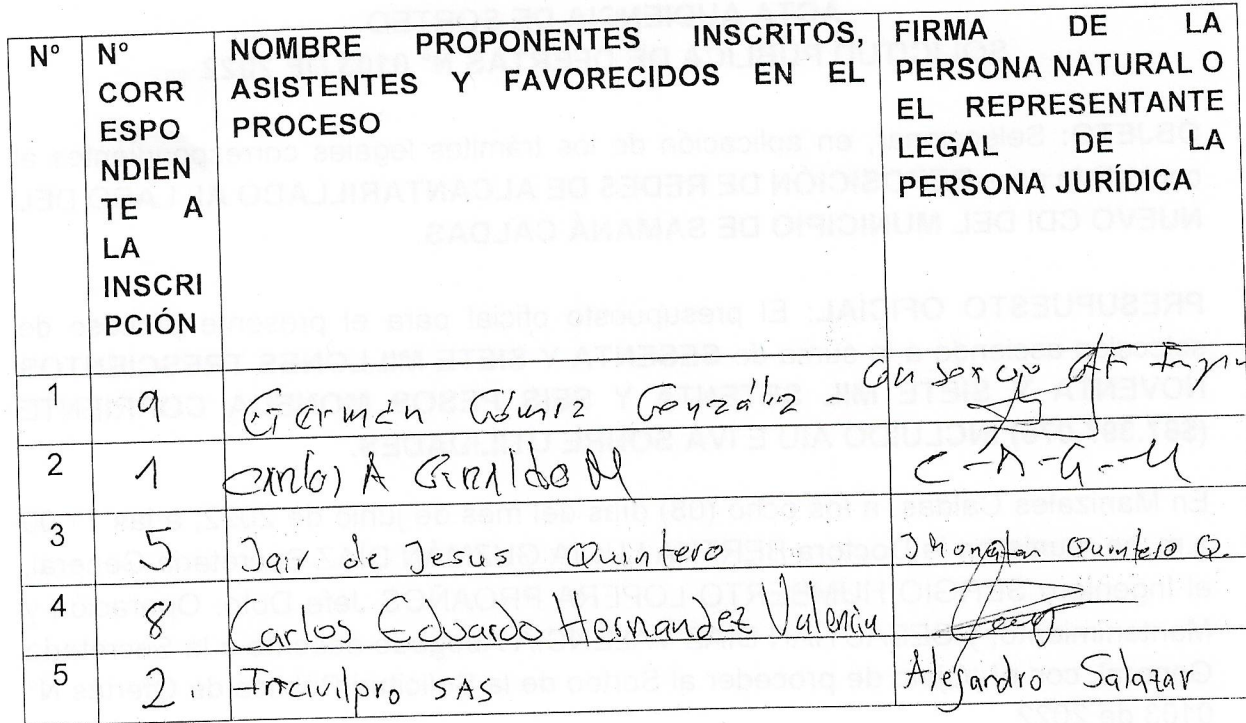 N°
N° CORR
ESPO
NDIEN
TE A
LA
INSCRI
PCIÓN
NOMBRE PROPONENTES INSCRITOS,
ASISTENTES Y FAVORECIDOS EN EL
PROCESO
FIRMA DE LA
PERSONA NATURAL O
EL REPRESENTANTE
LEGAL DE LA
PERSONA JURÍDICA
1 9 Germán González Consorcio AF
2 1 Carlos A Giraldo M C-A-G-M
3 5 Jair de Jesus Quintero Jhonatan Quintero Q.
4 8 Carlos Eduardo Hernandez Valencia
5 2. SAS Alejandro Salazar